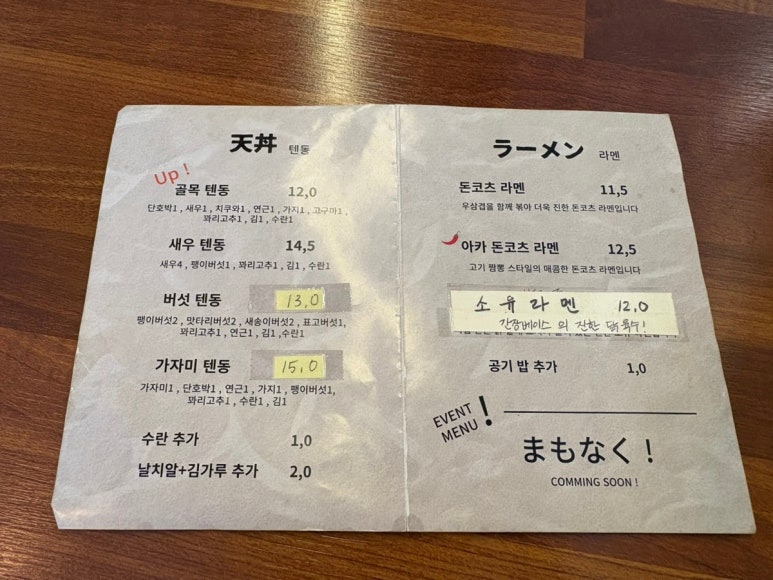 天丼 텐동
Up !
골목 텐동 12,0
단호박1 , 새우1 , 치쿠와1 , 연근1 , 가지1 , 고구마1 ,
꽈리고추1 , 김1 , 수란1
새우 텐동 14,5
새우4 , 팽이버섯1 , 꽈리고추1 , 김1 , 수란1
버섯 텐동 13,0
팽이버섯2 , 맛타리버섯2 , 새송이버섯2 , 표고버섯1,
꽈리고추1 , 연근1 , 김1 ,수란1
가자미 텐동 15,0
가자미1 , 단호박1 , 연근1 , 가지1 , 팽이버섯1,
꽈리고추1 , 수란1 , 김1
수란 추가 1,0
날치알+김가루 추가 2,0
ラーメン 라멘
돈코츠 라멘 11,5
우삼겹을 함께 볶아 더욱 진한 돈코츠 라멘입니다
아카 돈코츠 라멘 12,5
고기 짬뽕 스타일의 매콤한 돈코츠 라멘입니다
소유라멘 12,0
간장베이스 의 진한 육수!
공기 밥 추가 1,0
EVENT
MENU !
まもなく !
COMMING SOON !